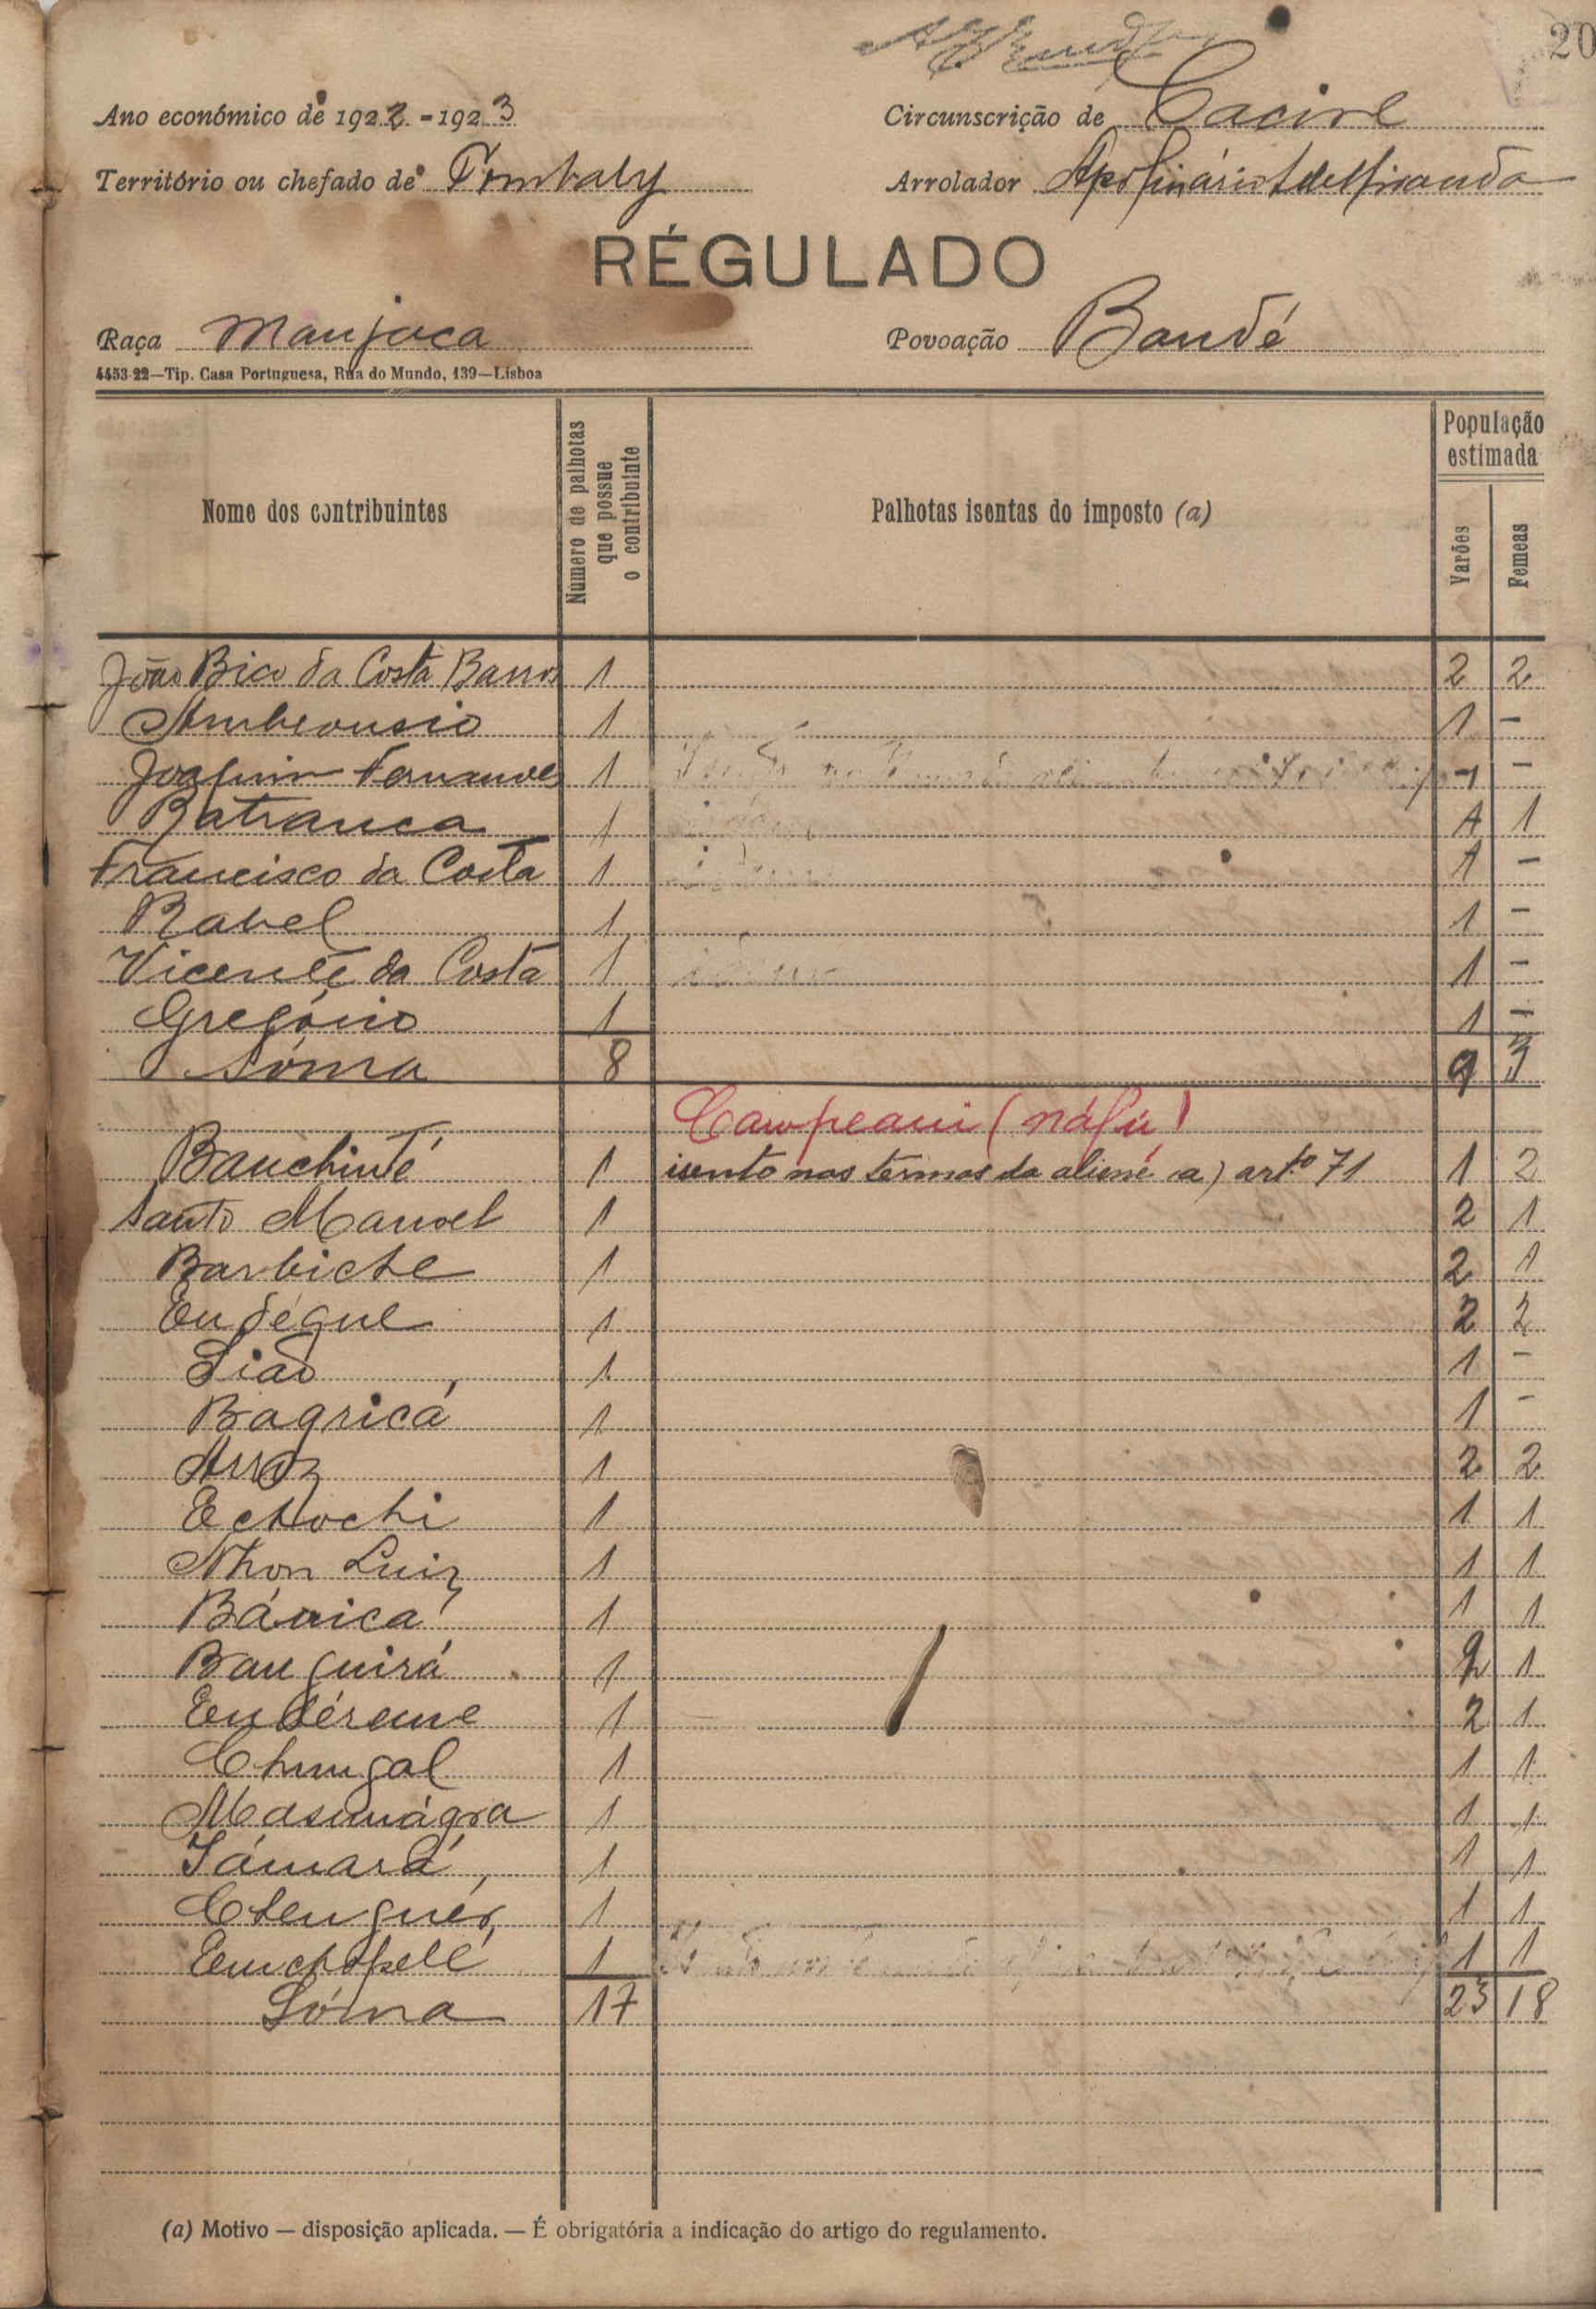 20
Ano económico de 1922-1923 Circunscrição de Cacine
Território ou chefado de Tombaly Arrolador Apolinário
RÉGULADO
Raça Manjaca Povoação Bandé
4453-22—Tip. Casa Portuguesa, Rua do Mundo, 139—Lisboa
Nome dos contribuintes Número de palhotas que possue o contribuinte Palhotas isentas do imposto (a) População estimada Varões Femeas
João Bico da Costa Barros 1 2 2
Ambrousio 1 1 -
Joaquim Fernandes 1 1 -
Batranca 1 1 1
Francisco da Costa 1 1 -
Rabel 1 1 -
Vicente da Costa 1 1 -
Gregório 1 1 -
Sôma 8 9 3
Campeani (náfú)
Banchinté 1 isento nos termos da aliné a) artº 71 1 2
Santo Manoel 1 2 1
Barbiche 1 2 1
Endégue 1 2 2
Sião 1 1 -
Bagricá 1 1 -
Arroz 1 2 2
Echochi 1 1 1
Nhon Luiz 1 1 1
Bánicá 1 1 1
Banguirá 1 2 1
Endérene 1 2 1
Chungal 1 1 1
Masumágra 1 1 1
Támará 1 1 1
Chenguér 1 1 1
Emchopelé 1 1 1
Sôma 17 23 18
(a) Motivo — disposição aplicada. — É obrigatória a indicação do artigo do regulamento.